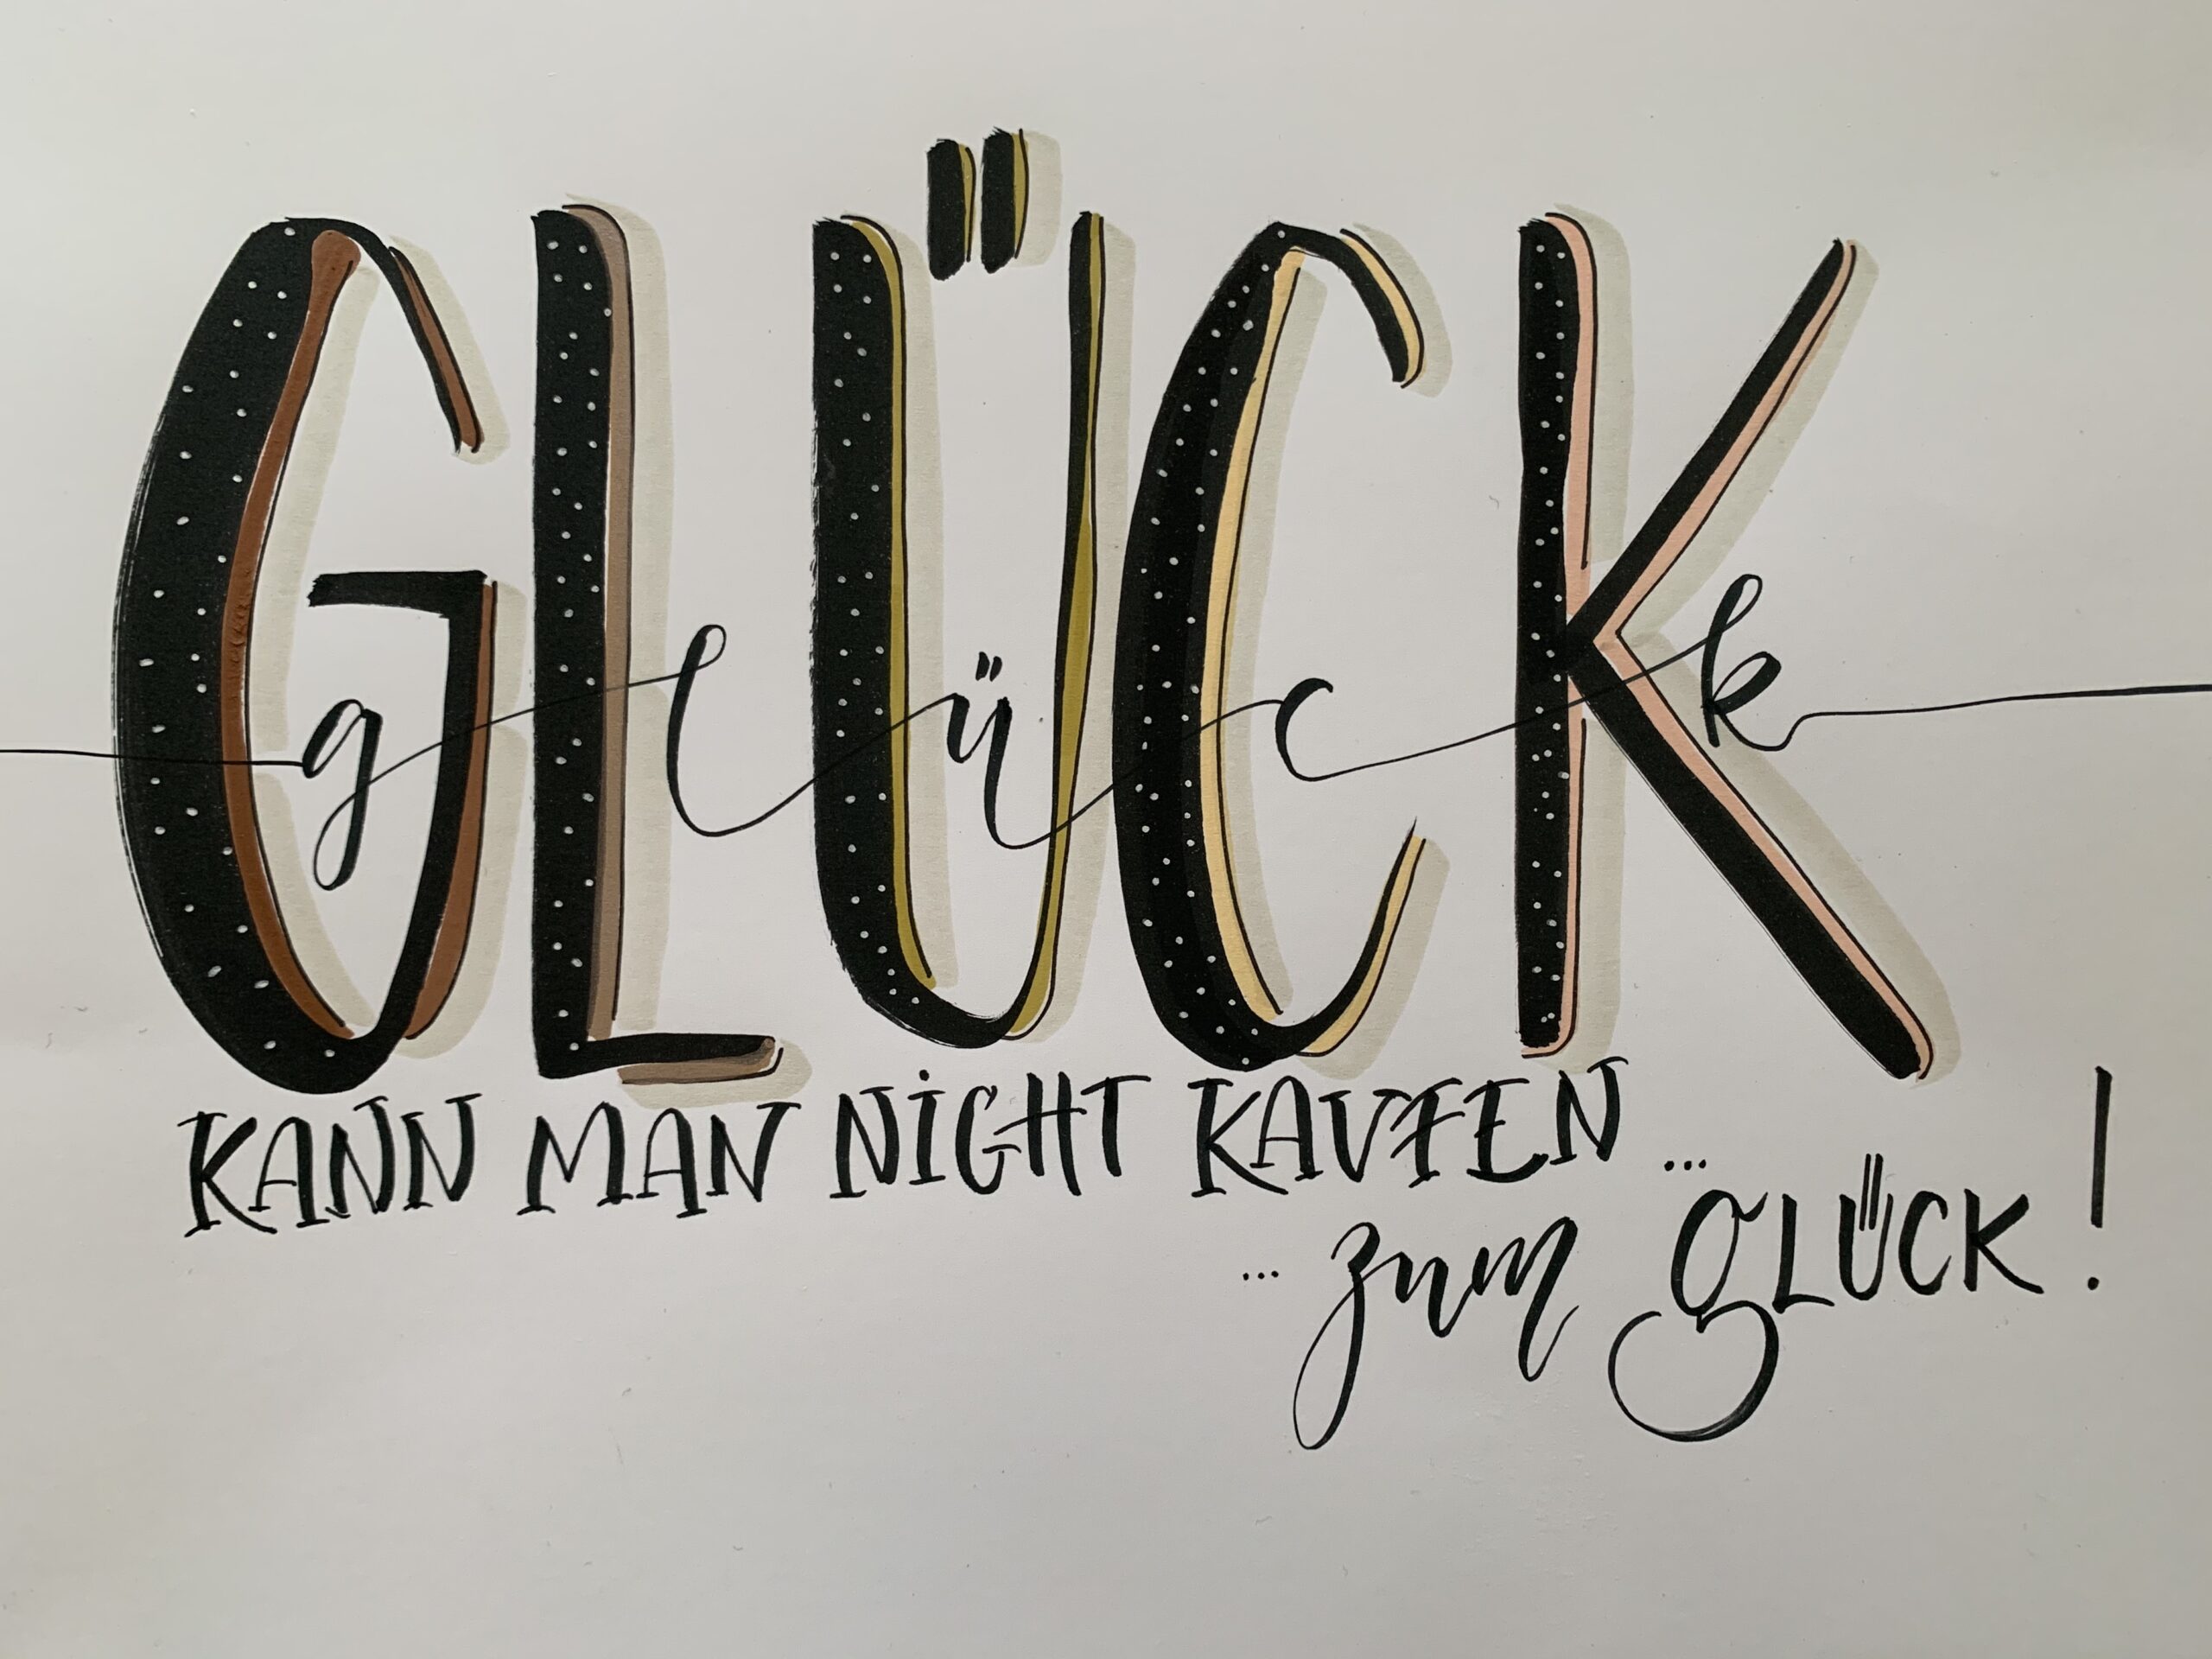 GLÜCK
glück
KANN MAN NICHT KAUFEN ...
... zum GLÜCK!